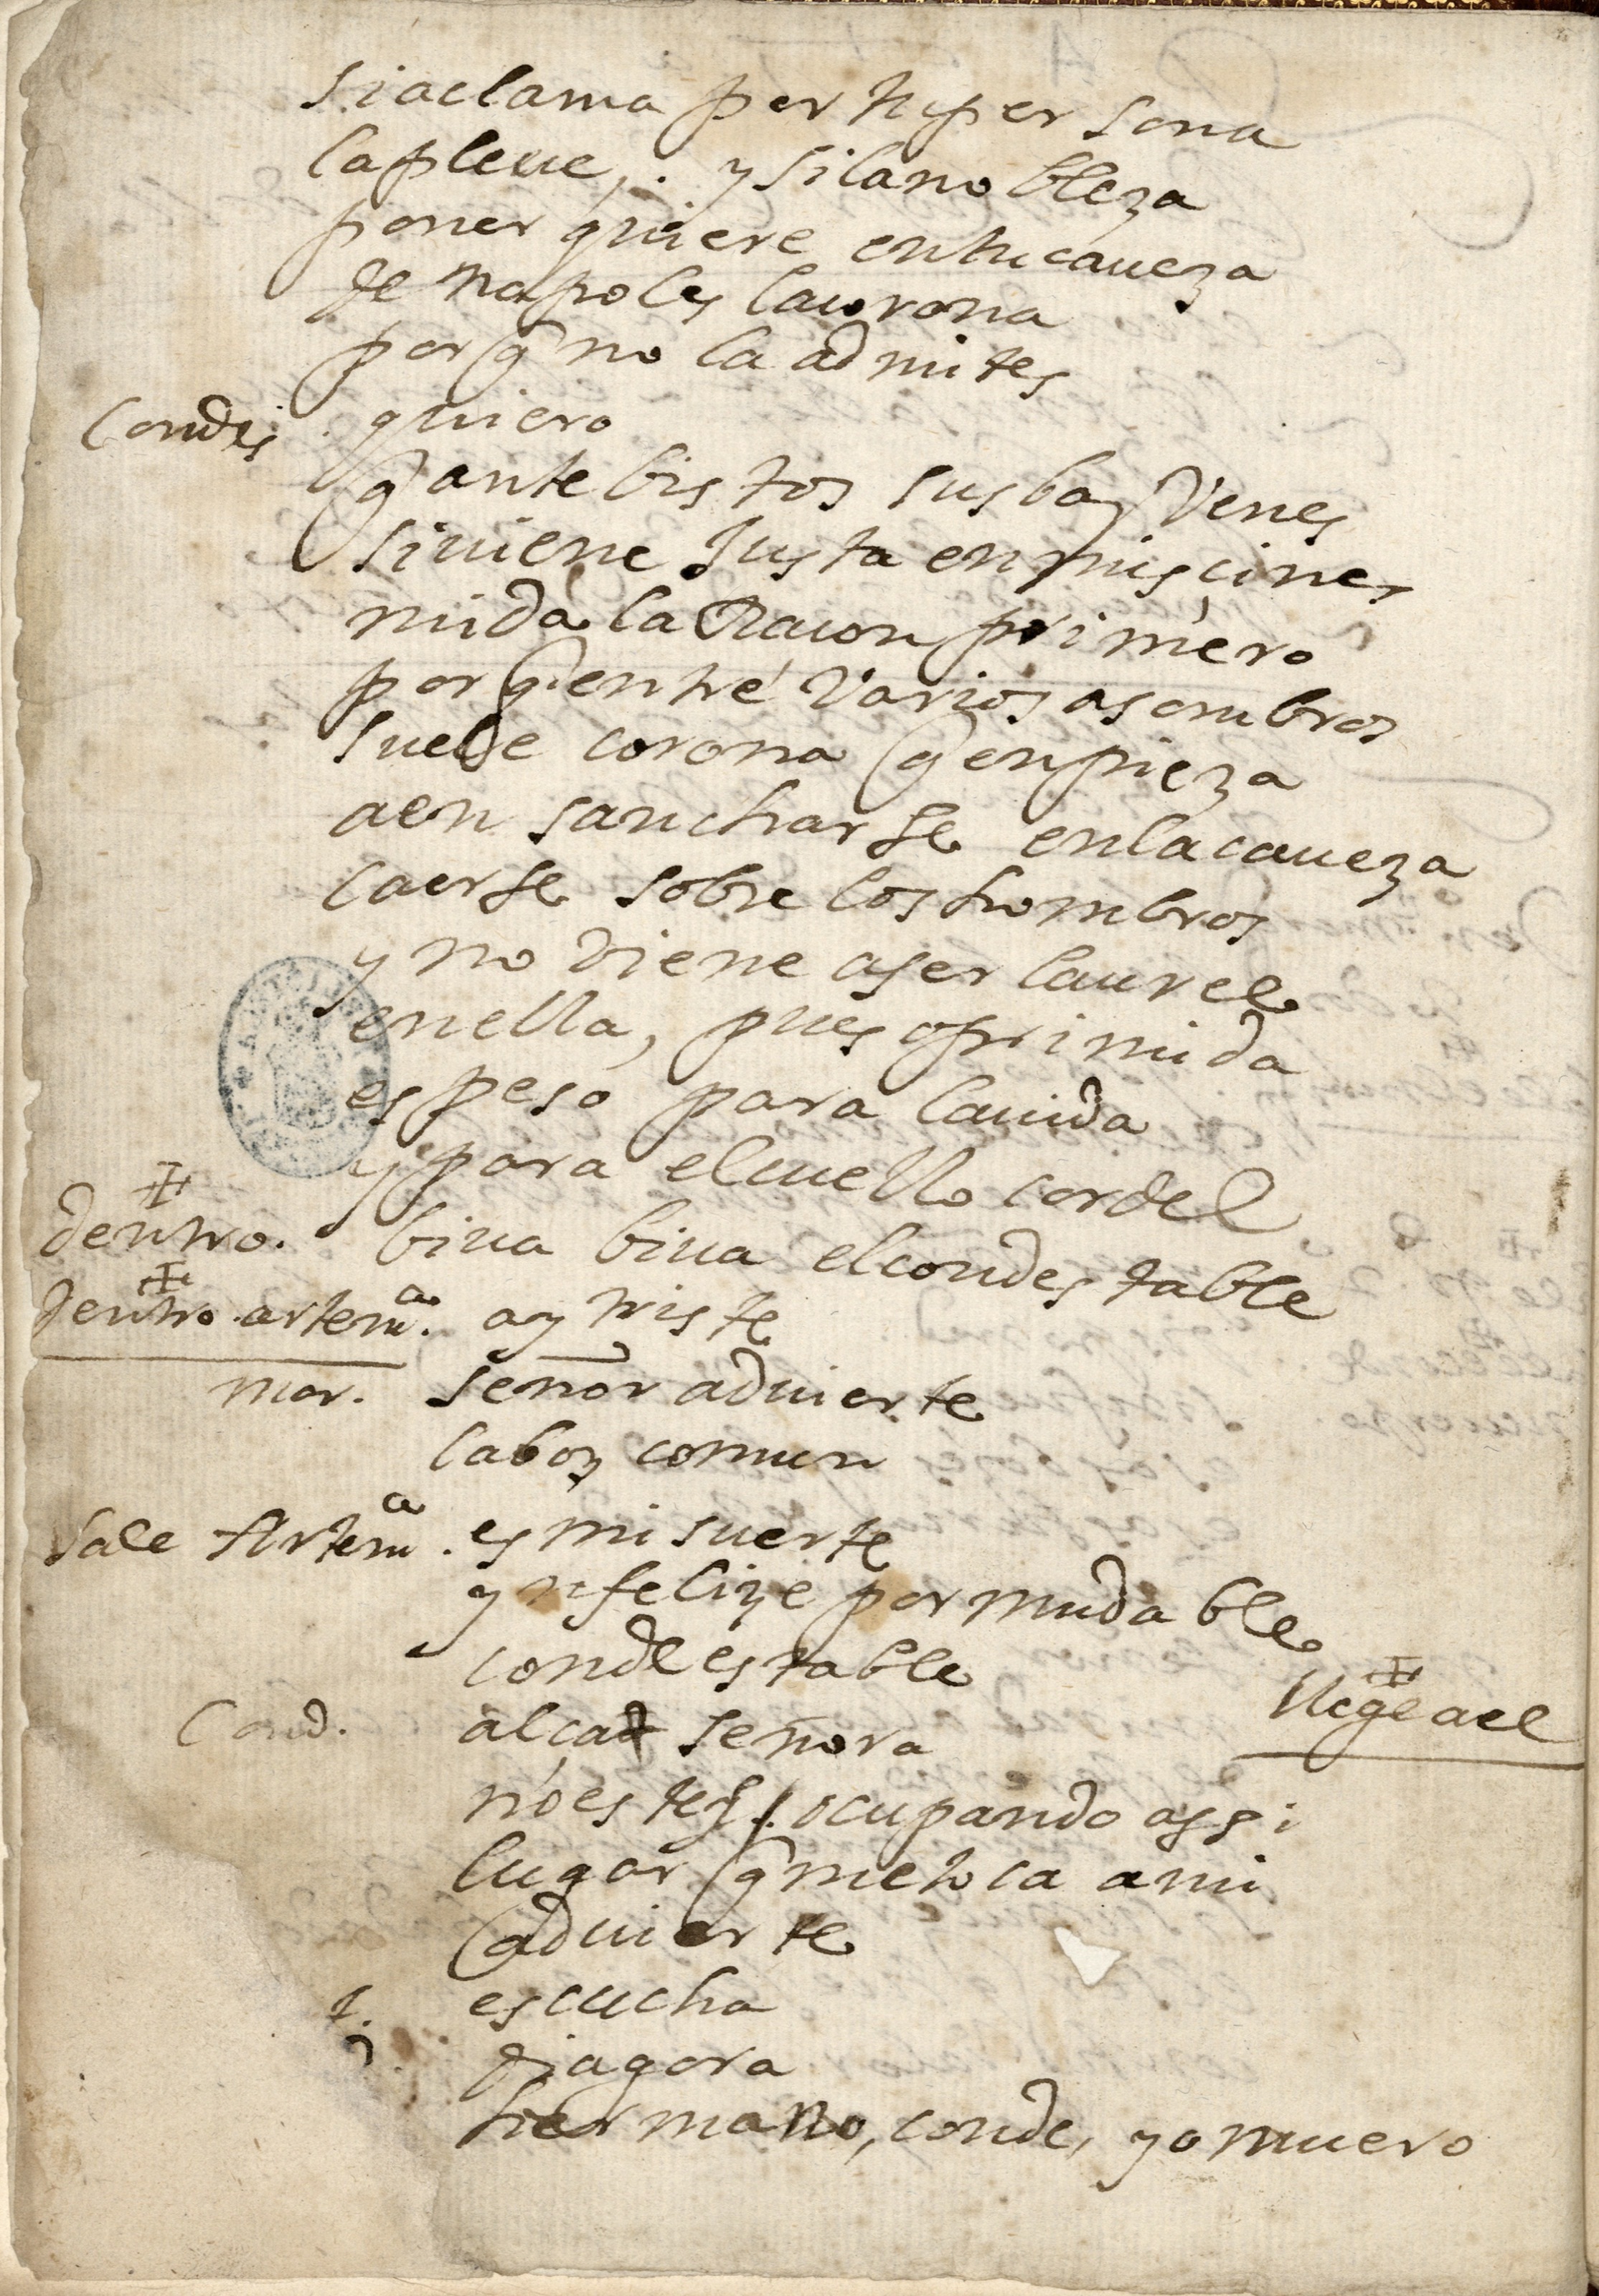 si aclama por tu persona
la pleue, . y si la nobleza
poner quiere en tu caueza
de napoles la corona
por q̃ no la admites
Condes . quiero
q̃ ante bistos sus baybenes
si uiene Justa en mis çines
mida la Raçon primero
por q̃ entre varios asombros
suele corona q̃ enpieza
a ensancharse en la caueza
caerse sobre los hombros
y no viene a ser laurel
en ella, pues oprimida
es peso para la uida
y para el cuello cordel
dentro. biua biua el condestable
dentro artemª. ay triste
mar. señor aduierte
la boz comun
Sale Artemª . es mi suerte
ynfelize por mudable
condestable
llegue a el
Cond. alçad señora
no esteys ocupando assi
lugar q̃ me toca a mi
aduierte
1. escucha
2. di agora
hermano, conde, yo muero